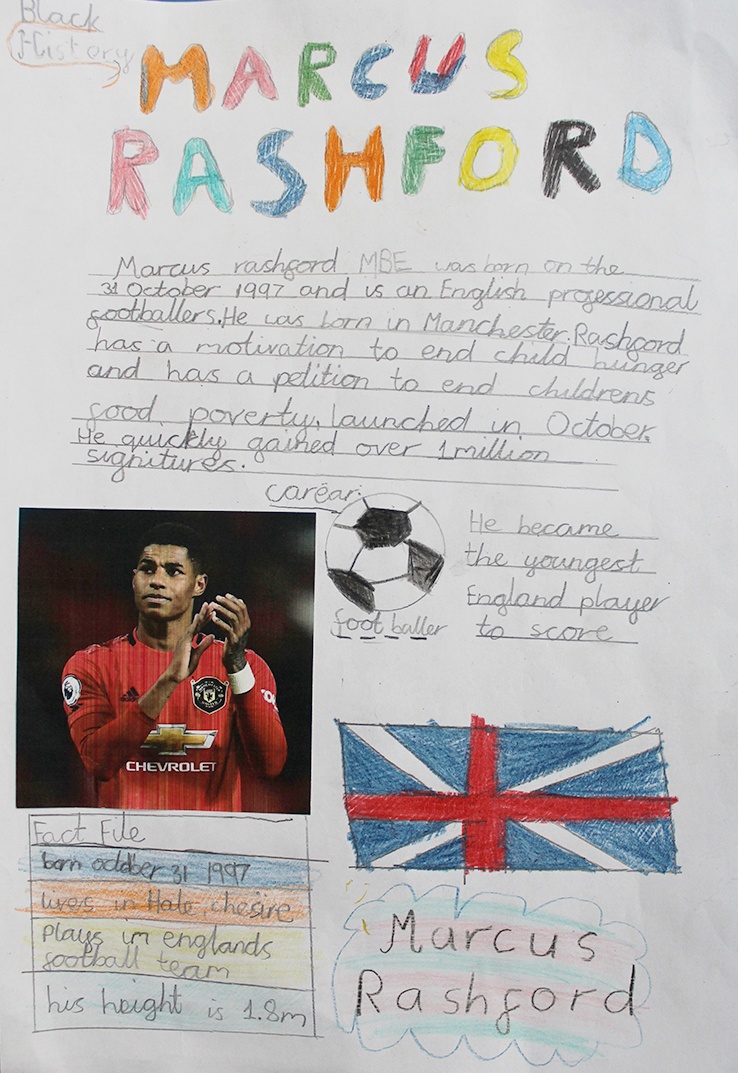 Black
History
MARCUS
RASHFORD
Marcus rashford MBE was born on the
31 October 1997 and is an English professional
footballers. He was born in Manchester. Rashford
has a motivation to end child hunger
and has a petition to end childrens
food poverty, launched in October.
He quickly gained over 1million
signitures.
carear.
He became
the youngest
England player
to score
footballer
CHEVROLET
Fact File
born october 31 1997
lives in Hale, chesire
plays in englands
football team
his height is 1.8m
Marcus
Rashford